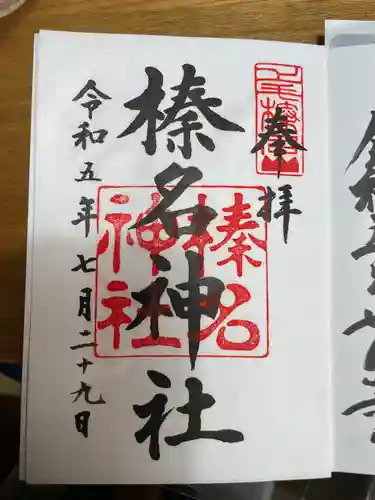 奉拝
榛名神社
榛名神社
令和五年七月二十九日